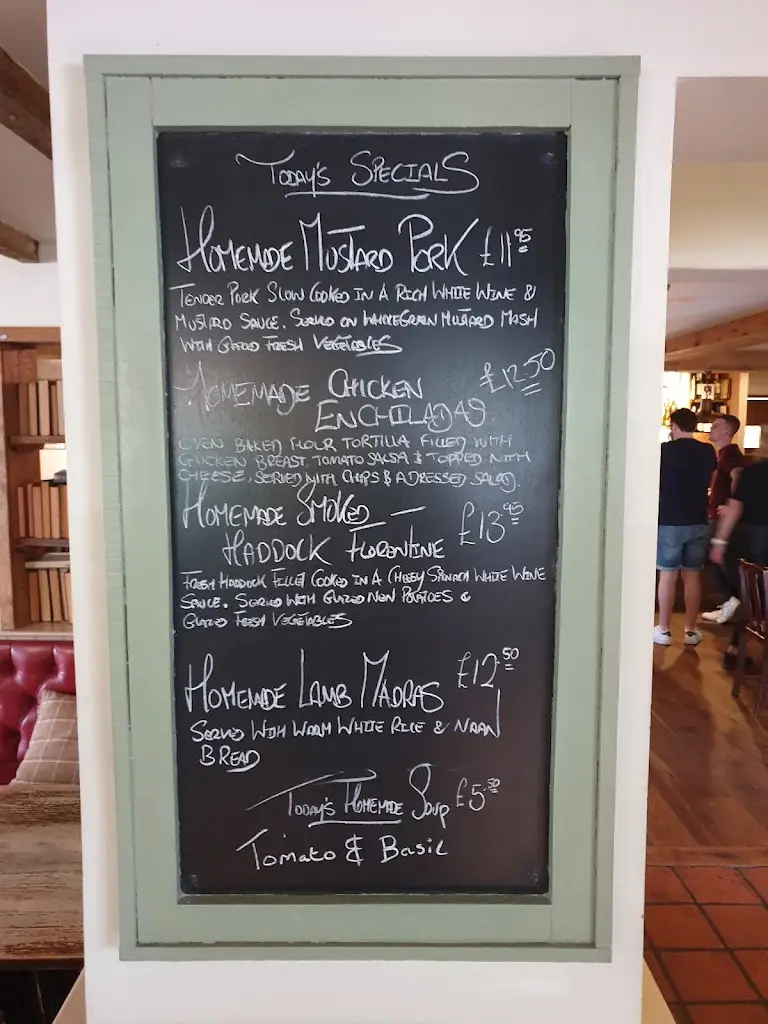 TODAY'S SPECIALS
HOMEMADE MUSTARD PORK £11.95
TENDER PORK SLOW COOKED IN A RICH WHITE WINE &
MUSTARD SAUCE. SERVED ON WHOLEGRAIN MUSTARD MASH
WITH GLAZED FRESH VEGETABLES
HOMEMADE CHICKEN £12.50
ENCHILADAS
OVEN BAKED FLOUR TORTILLA FILLED WITH
CHICKEN BREAST, TOMATO SALSA & TOPPED WITH
CHEESE, SERVED WITH CHIPS & A DRESSED SALAD.
HOMEMADE SMOKED
HADDOCK FLORENTINE £13.95
FRESH HADDOCK FILLET COOKED IN A CHEESY SPINACH WHITE WINE
SAUCE. SERVED WITH GLAZED NEW POTATOES &
GLAZED FRESH VEGETABLES
HOMEMADE LAMB MADRAS £12.50
SERVED WITH WARM WHITE RICE & NAAN
BREAD
TODAY'S HOMEMADE SOUP £5.50
Tomato & Basil